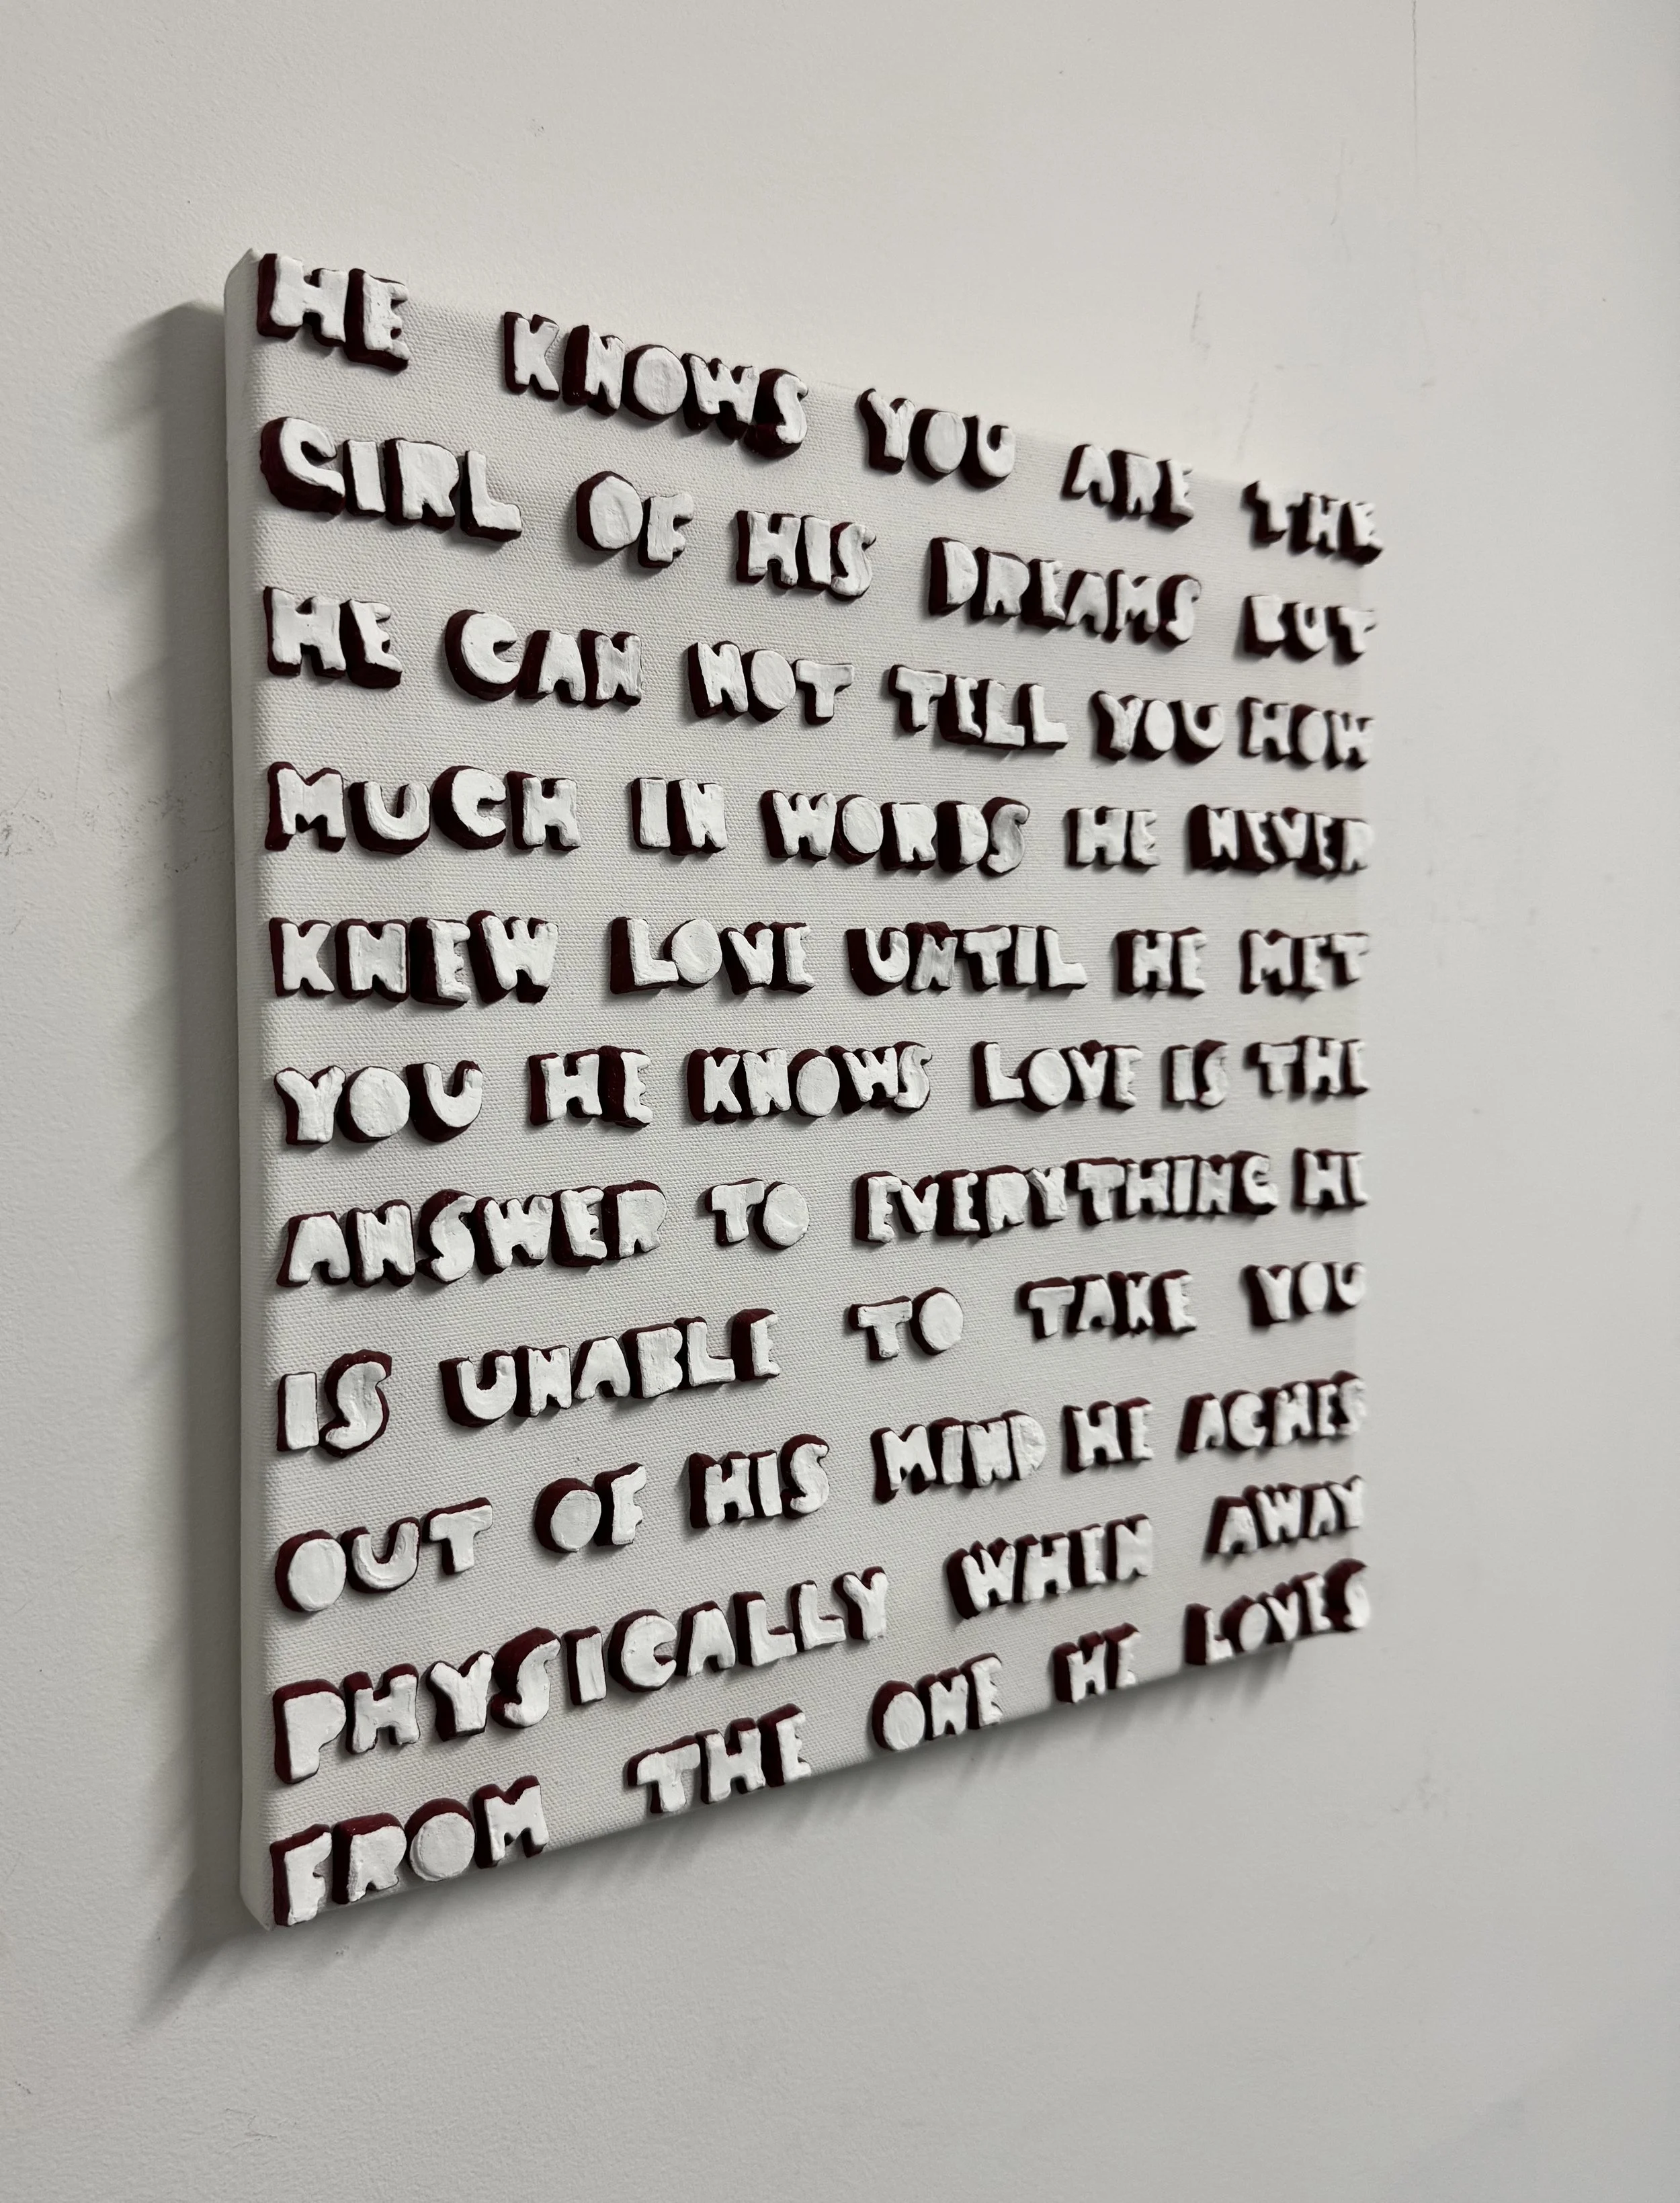 HE KNOWS YOU ARE THE
GIRL OF HIS DREAMS BUT
HE CAN NOT TELL YOU HOW
MUCH IN WORDS HE NEVER
KNEW LOVE UNTIL HE MET
YOU HE KNOWS LOVE IS THE
ANSWER TO EVERYTHING HE
IS UNABLE TO TAKE YOU
OUT OF HIS MIND HE ACHES
PHYSICALLY WHEN AWAY
FROM THE ONE HE LOVES